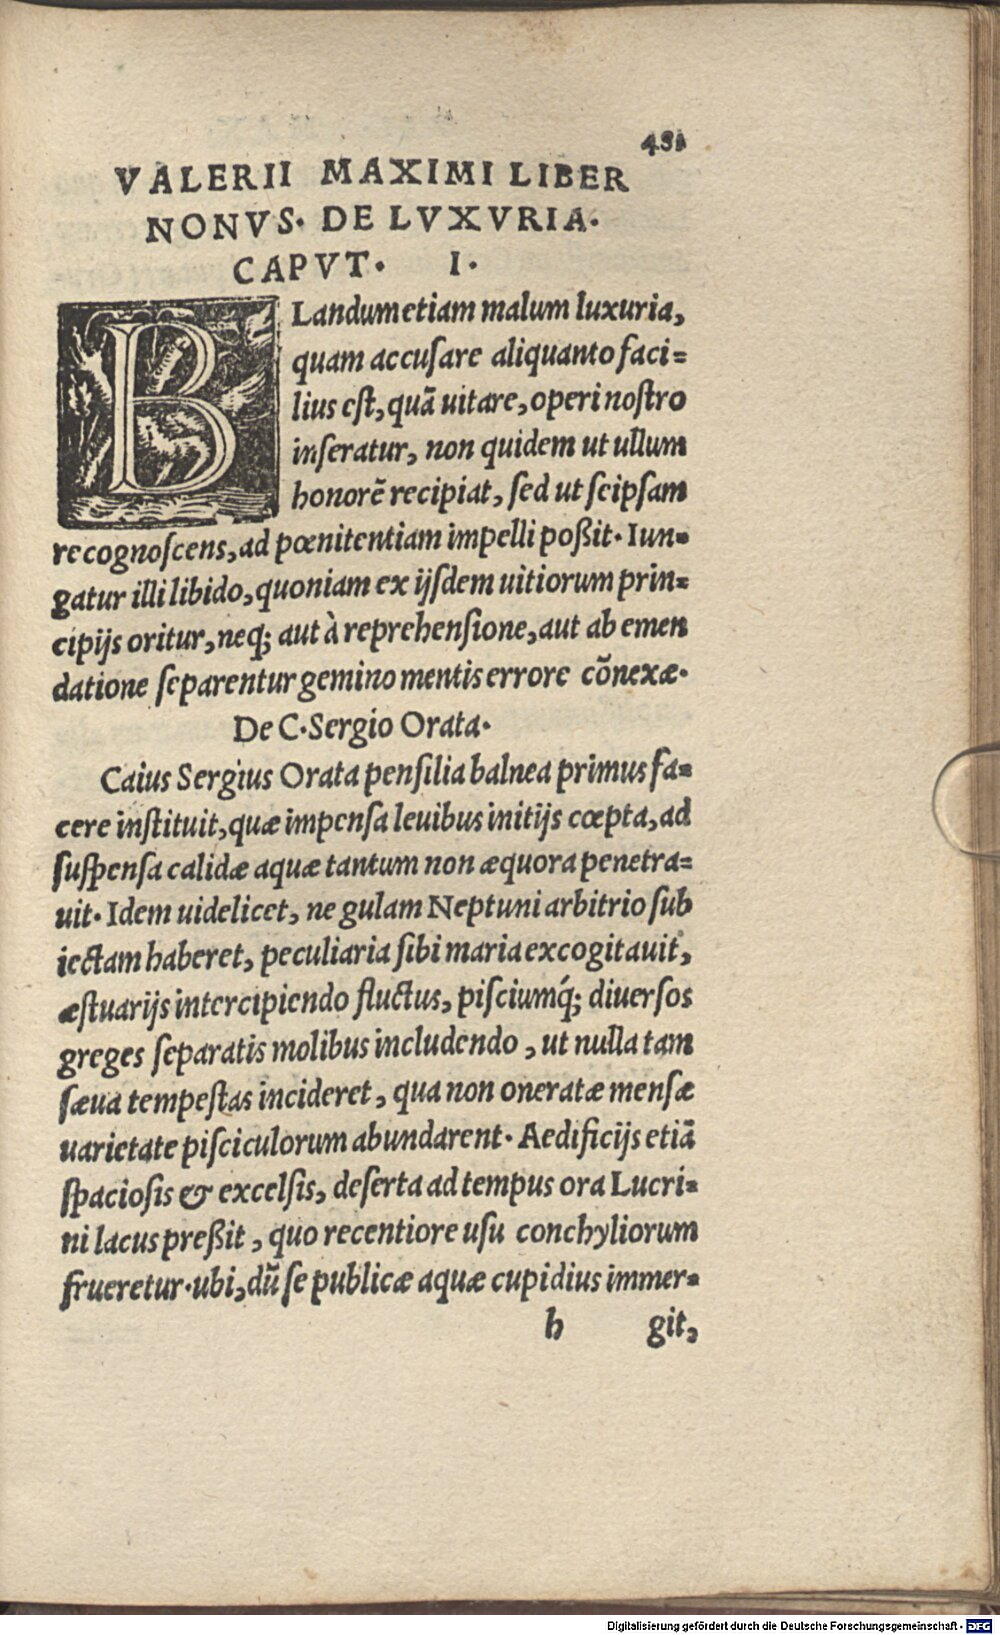 431
VALERII MAXIMI LIBER
NONVS. DE LVXVRIA.
CAPVT. I.
BLandum etiam malum luxuria,
quam accuſare aliquanto faci=
lius eſt, quā uitare, operi noſtro
inſeratur, non quidem ut ullum
honorē recipiat, ſed ut ſeipſam
recognoſcens, ad pœnitentiam impelli poßit. Iun=
gatur illi libido, quoniam ex ijſdem uitiorum prin=
cipijs oritur, neq; aut à reprehenſione, aut ab emen
datione ſeparentur gemino mentis errore cōnexæ.
De C. Sergio Orata.
Caius Sergius Orata penſilia balnea primus fa=
cere inſtituit, quæ impenſa leuibus initijs cœpta, ad
ſuſpenſa calidæ aquæ tantum non æquora penetra=
uit. Idem uidelicet, ne gulam Neptuni arbitrio ſub
iectam haberet, peculiaria ſibi maria excogitauit,
æſtuarijs intercipiendo fluctus, piſciumq́; diuerſos
greges ſeparatis molibus includendo, ut nulla tam
ſæua tempeſtas incideret, qua non oneratæ menſæ
uarietate piſciculorum abundarent. Aedificijs etiā
ſpacioſis & excelſis, deſerta ad tempus ora Lucri=
ni lacus preßit, quo recentiore uſu conchyliorum
frueretur. ubi, dū ſe publicæ aquæ cupidius immer=
h git,
Digitalisierung gefördert durch die Deutsche Forschungsgemeinschaft - DFG